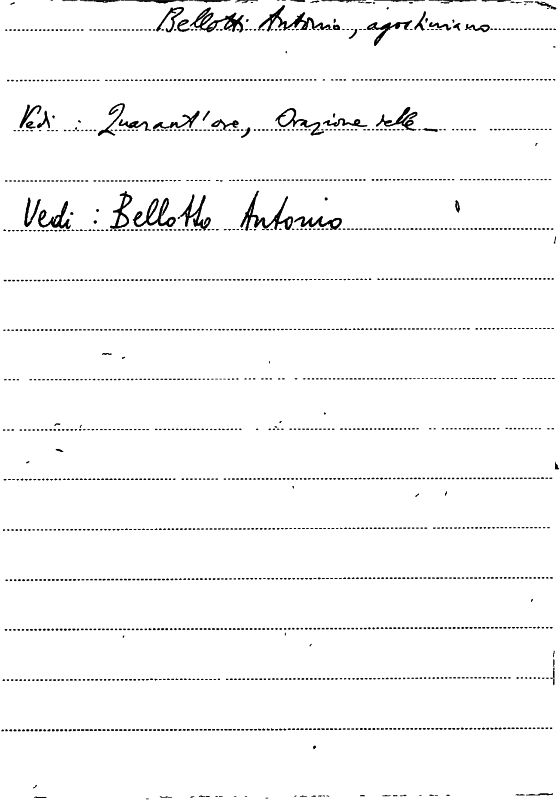 Bellotti Antonio, agostiniano
Vedi : Quarant'ore, Orazione delle_
Vedi : Bellotto Antonio